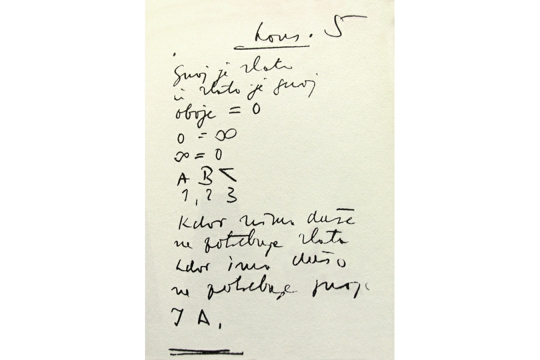 Kons. 5
Gnoj je zlato
in zlato je gnoj
oboje = 0
0 = ∞
∞ = 0
A B <
1, 2 3
Kdor nima duše
ne potrebuje zlata
kdor ima dušo
ne potrebuje gnoja
I A,